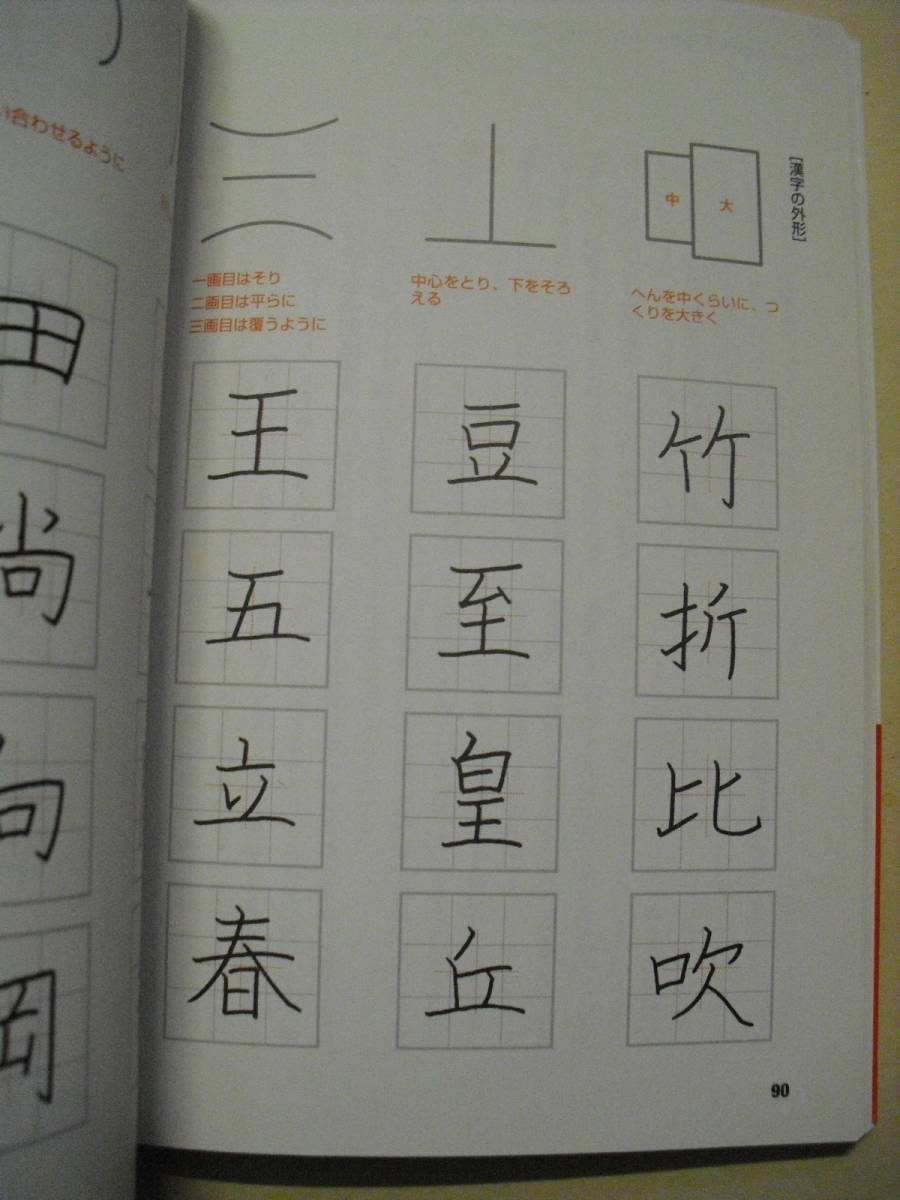 [漢字の外形]
中
大
へんを中くらいに、つ
くりを大きく
竹
折
比
吹
中心をとり、下をそろ
える
豆
至
皇
丘
一画目はそり
二画目は平らに
三画目は覆うように
王
五
立
春
90
合わせるように
田
尚
向
岡